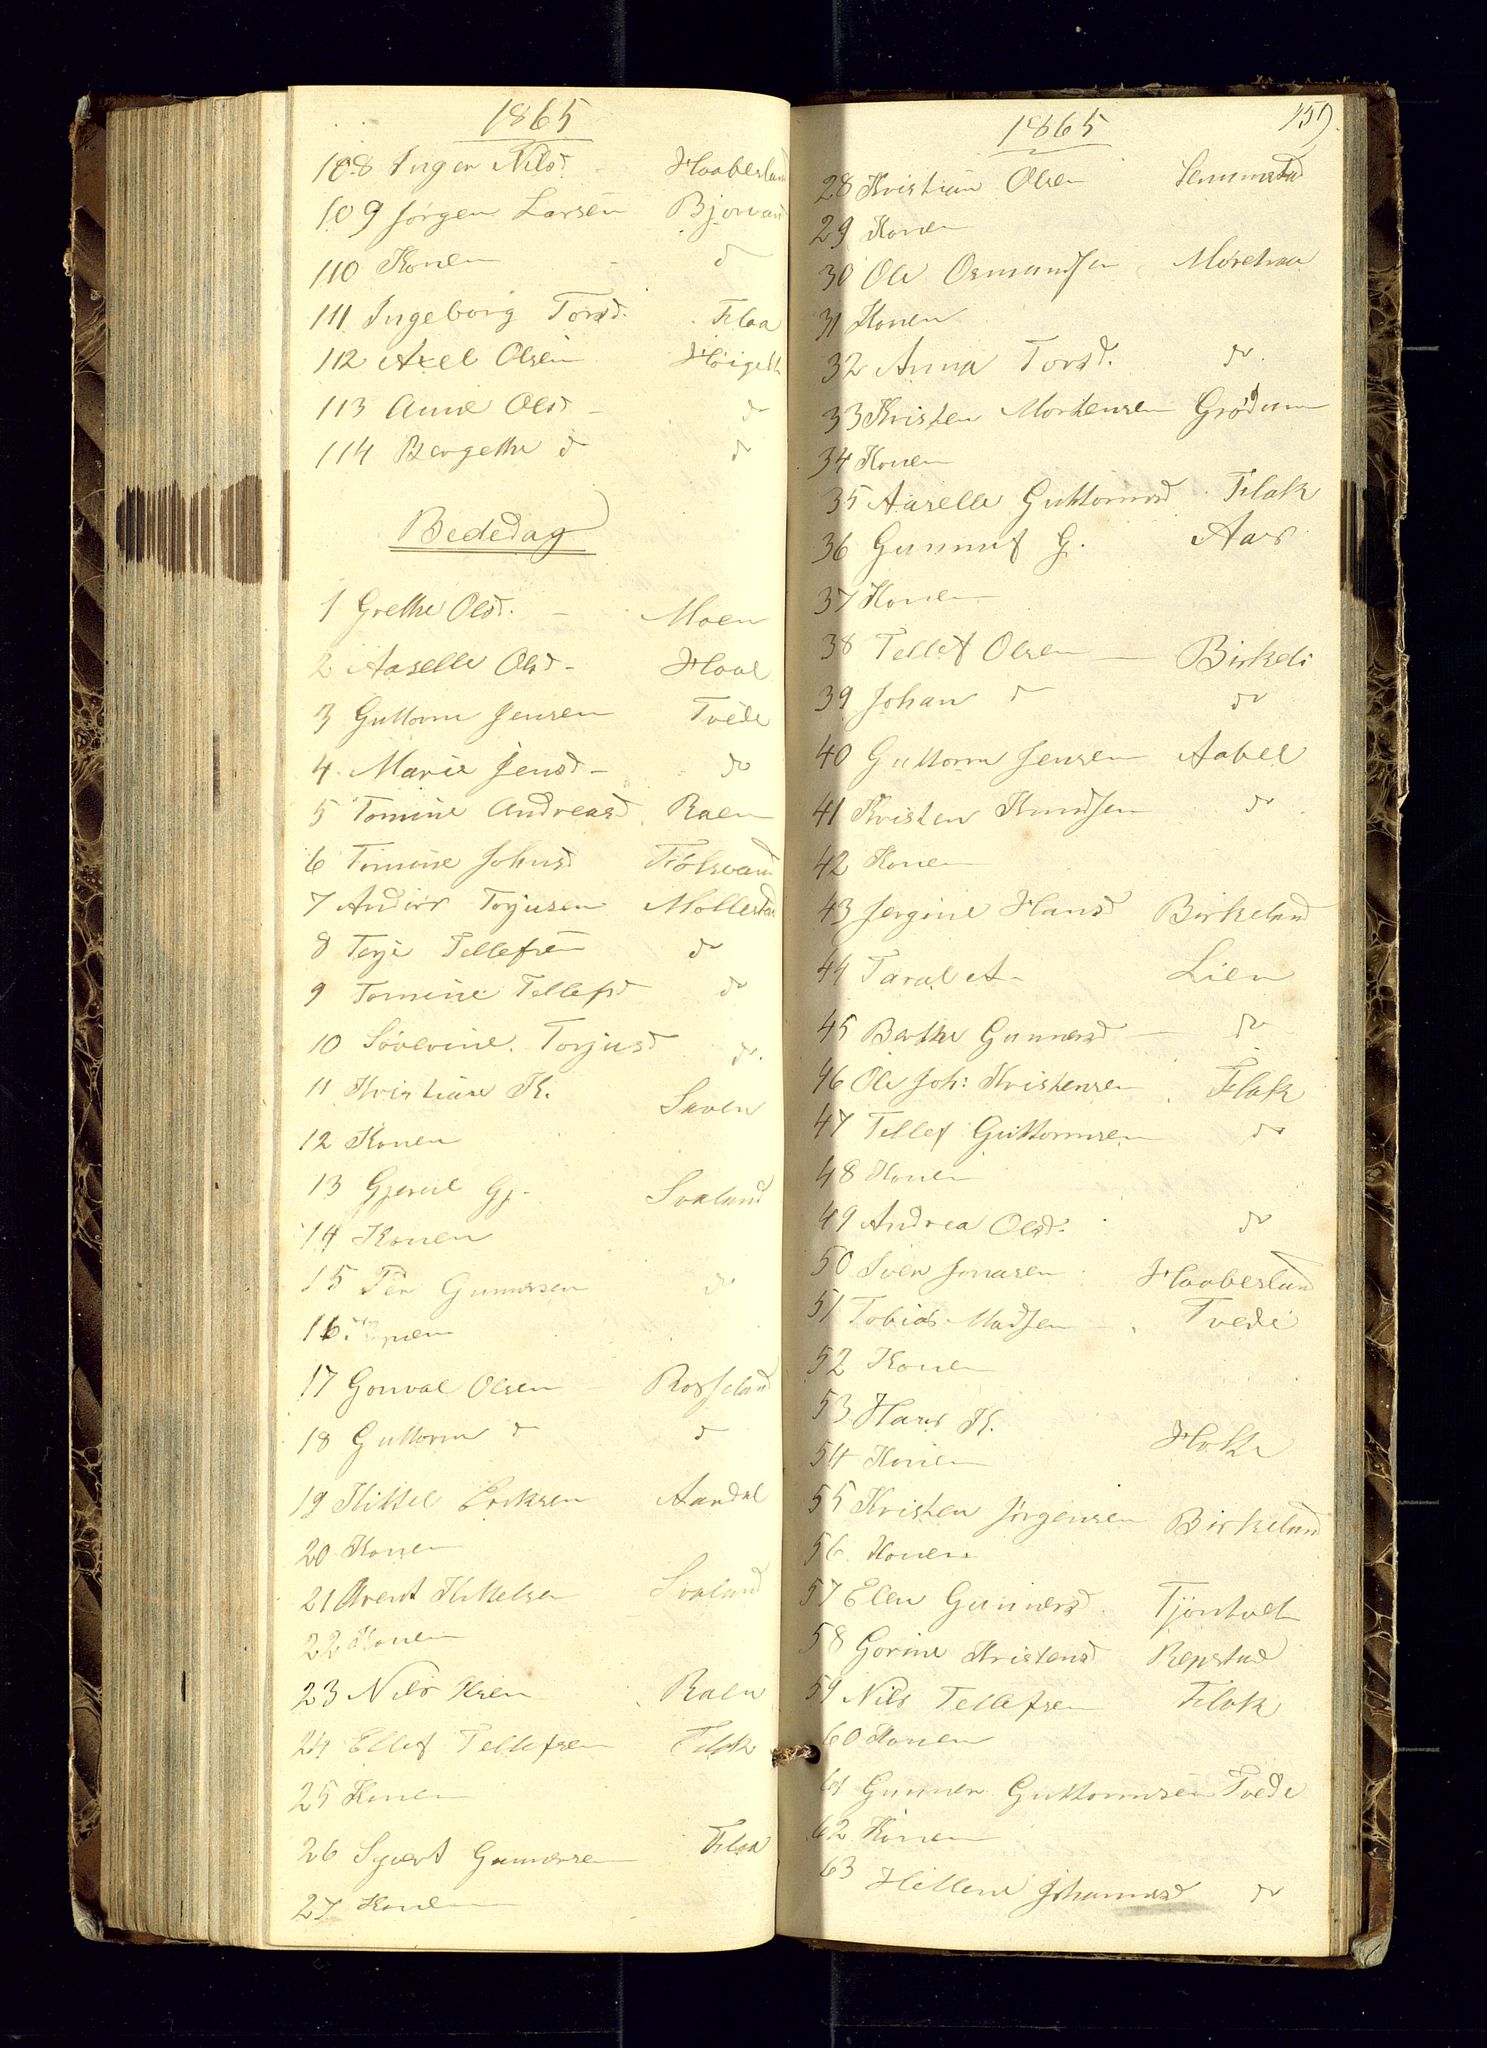 1865
108 Inger Nilsd. - Haabesland
109 Jørgen Larsen Bjorvand
110 Konen - d
111 Ingeborg Torsd. Flaa
112 Axel Olsen
113 Anne Olsd - do
114 Bergethe d do
Bededag
1 Grethe Olsd. - Moen
2 Aaselle Olsd -
3 Guttorm Jensen Tvede
4 Marie Jensd - do
5 Tomine Andreasd Raen
6 Tomine Johnsd
7 Anders Torjusen Mollestad
8 Terje Tellefsen do
9 Tomine Tellefsd do
10 Søverine Torjusd do.
11 Kristian K. Saven
12 Konen
13 Gjerul Gj. Svaland
14 Konen
15 Per Gunnersen do
16 Konen
17 Gonval Olsen - Rosseland
18 Guttorm do d
19 Kittel Eriksen Aardal
20 Konen
21 Arent Kittelsen Svaland
22 Konen
23 Nils Olsen Raen
24 Ellef Tellefsen Flak
25 Konen
26 Syvert Gunnersen Flaa
27 Konen
1865 159.
28 Kristian Olsen
29 Konen
30 Ole Osmundsen
31 Konen
32 Anna Torsd. do.
33 Kristen Mortensen Grødum
34 Konen
35 Aaselle Guttormsd Flak
36 Gunnuf G. Aas
37 Konen
38 Tellef Olsen - Birkeli
39 Johan d do
40 Guttorm Jensen Aabel
41 Kristen Knudsen do
42 Konen
43 Jorgine Hansd Birkeland
44 Taral A - Lien
45 Berthe Gunnersd - do
46 Ole Joh: Kristensen Flak
47 Tellef Guttormsen do
48 Konen
49 Andrea Olsd. do
50 Sven Jonasen Haabesland
51 Tobias Madsen Tvede
52 Konen
53 Hans K.
54 Konen
55 Kristen Jörgensen Birkeland
56 Konen
57 Elen Gunnersd Tjöntvet
58 Gorine Kristensd Repstad
59 Nils Tellefsen Flak
60 Konen
61 Gunner Guttormsen Tvede
62 Konen
63 Hellene Johannesd do